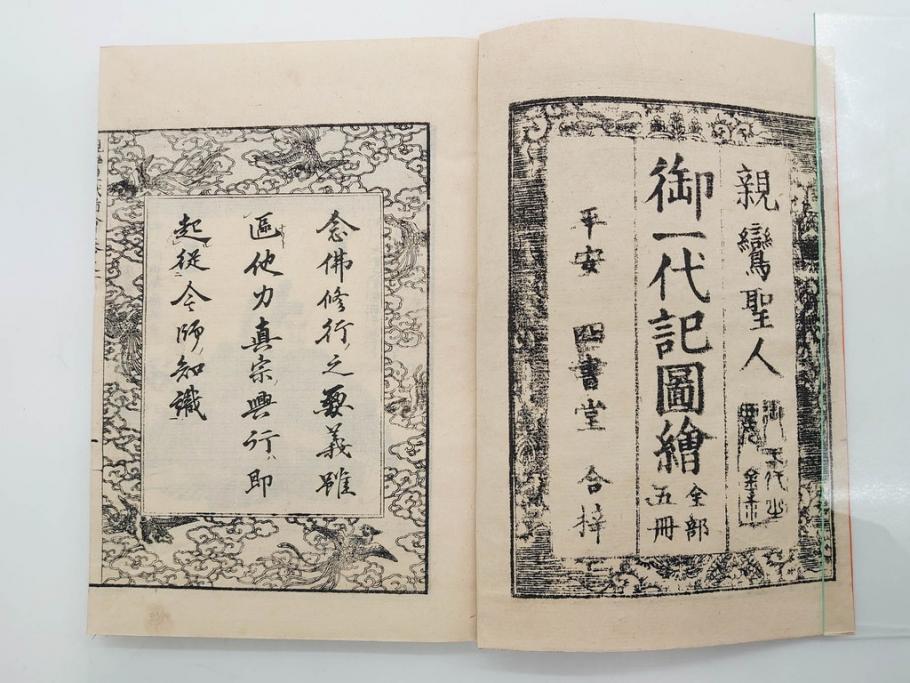 親鸞聖人
御一代記圖繪
全部
五冊
平安 四書堂 合梓
念佛修行之要義雖
區他力真宗興行即
起従今師知識